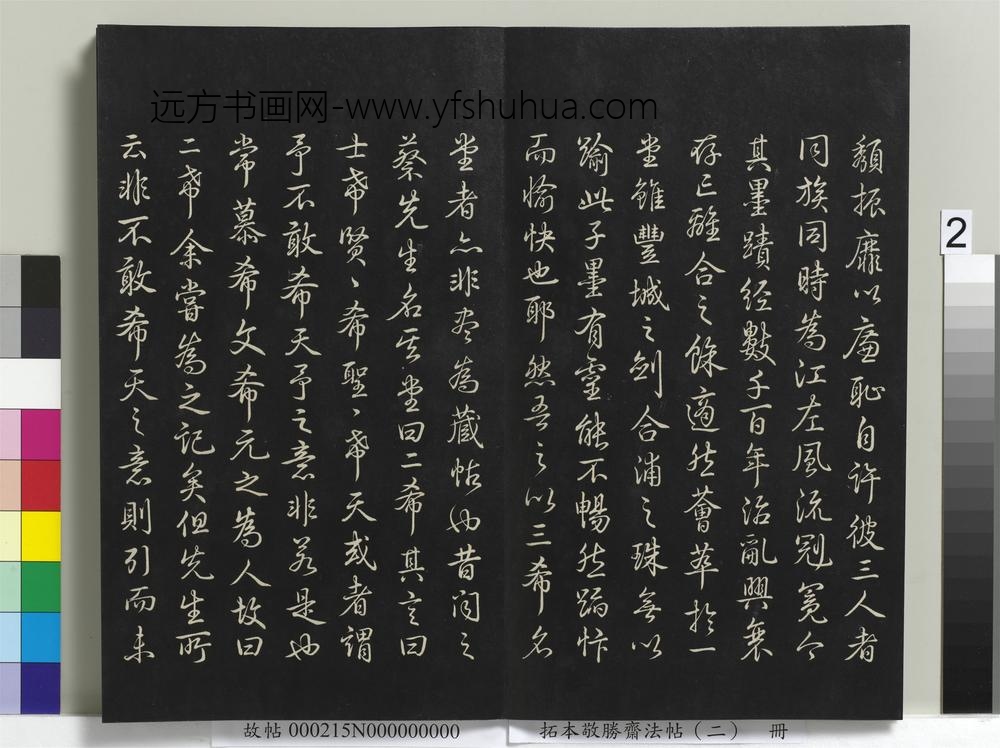 远方书画网-www.yfshuhua.com
頹振靡以廉恥自許彼三人者
同族同時為江左風流冠冕今
其墨蹟經數千百年治亂興衰
存亡離合之餘適然薈萃於一
堂雖豐城之劍合浦之珠無以
踰此子墨有靈能不暢然蹈忭
而愉快也耶然吾之以三希名
堂者亦非盡為藏帖也昔聞之
蔡先生名其堂曰二希其言曰
士希賢〻希聖〻希天或者謂
予不敢希天予之意非若是也
常慕希文希元之為人故曰
二希余嘗為之記矣但先生所
云非不敢希天之意則引而未
2
故帖 000215N000000000
拓本敬勝齋法帖（二） 冊